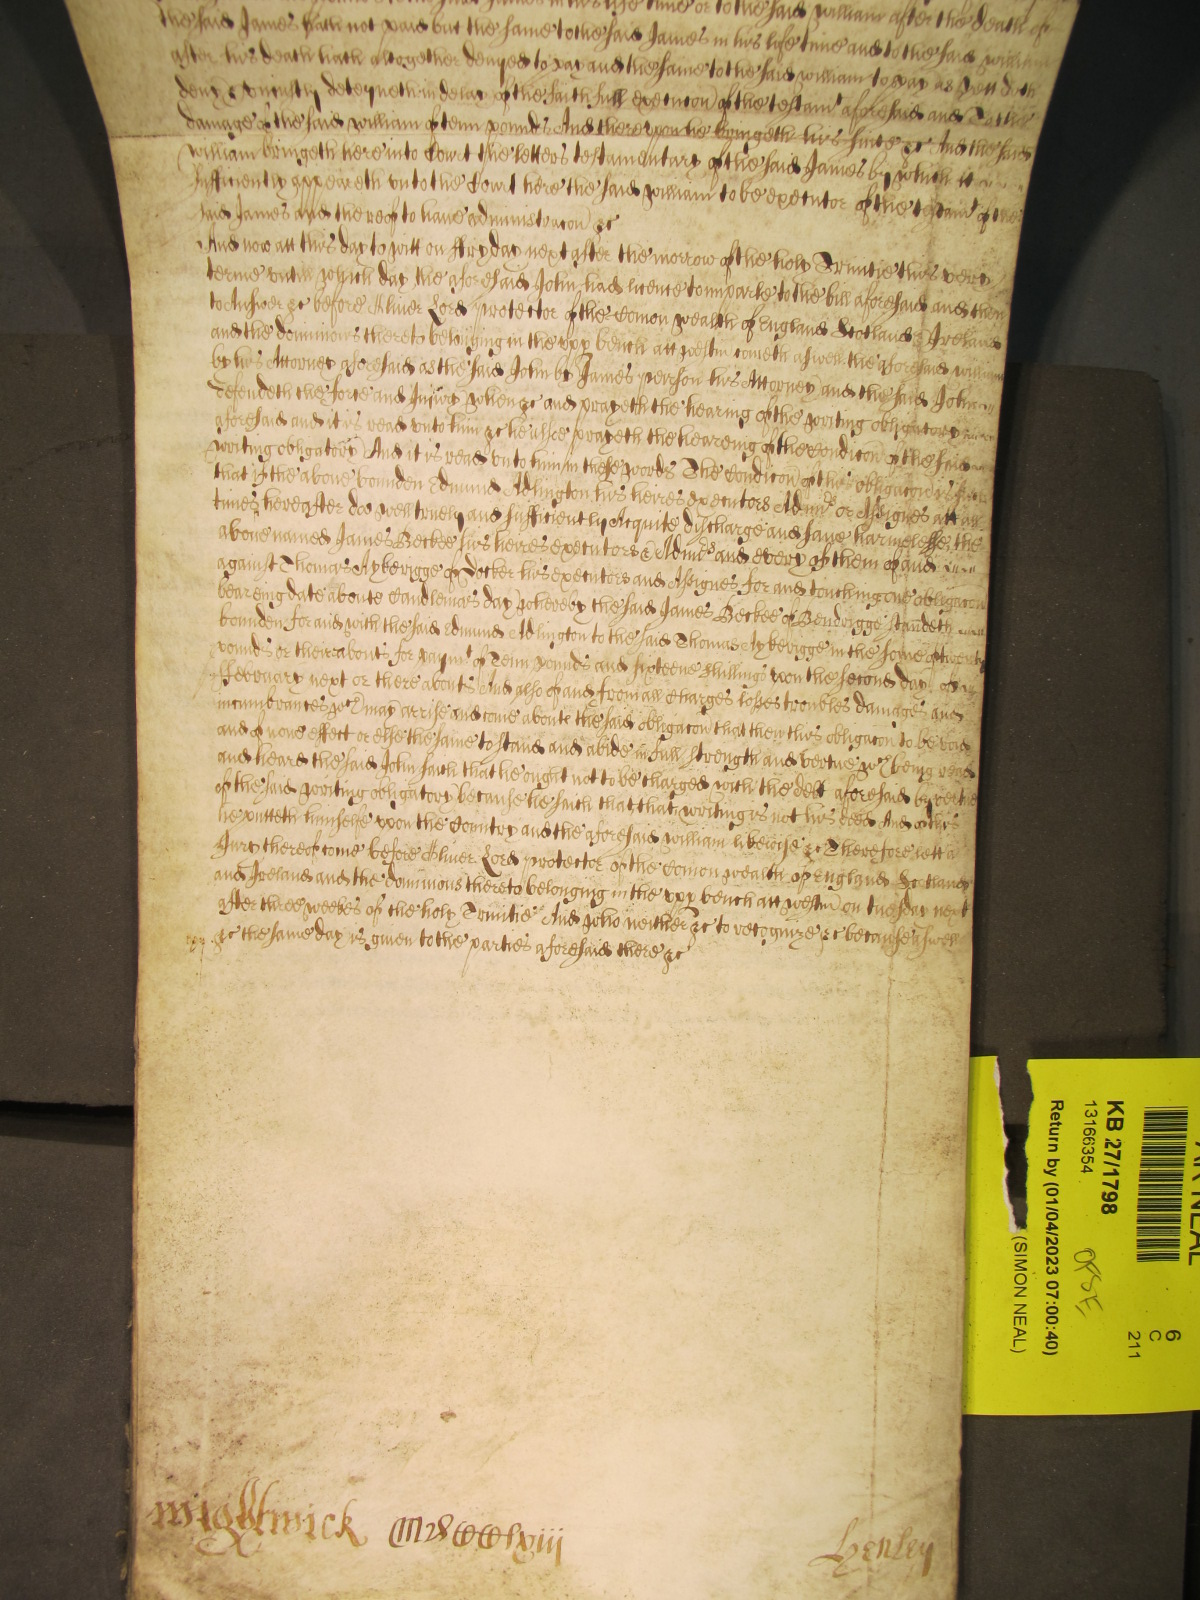 the said James hath not paid but the same to the said James in his life time and to the said William
after his death hath altogether denyed to pay and the same to the said William to pay as yett doth
deny & uniustly deteyneth in delay of the faithfull execucon of the testamt aforesaid and to the
damage of the said William of tenn pounds And thereupon he bringeth his suite &c And the said
William bringeth here into Court the letters testamentary of the said James by which it
sufficiently appeareth unto the Court here the said William to be executor of the testamt of the
said James and thereof to have administracon &c
And now att this day to witt on ffryday next after the morrow of the holy Trinitie this very
terme untill which day the aforesaid John had licence to imparle to the bill aforesaid and then
to Answer &c before Oliver Lord protector of the Comon wealth of England Scotland & Ireland
and the dominions thereto belonging in the upp bench att westm cometh aswell the aforesaid William
by his Attorney aforesaid as the said John by James pierson his Attorney and the said John
defendeth the force and Iniury when &c and prayeth the hearing of the writing obligatory
aforesaid and it is read unto him &c he alsoe prayeth the heareing of the Condicon of the said
writing obligatory And it is read unto him in these words The Condicon of this obligacon is such
that if the above bounden Edmund Adlington his heires executors Admrs or Assignes att all
times hereafter doe well truely and sufficiently Acquite discharge and save harmelesse the
above named James Beckee his heires executors & Admrs and every of them of and
against Thomas Aykerigge of docker his executors and Assignes for and touching one obligacon
beareing date aboute Candlemas day whereby the said James Beckee of Bendrigge standeth
bounden for and with the said Edmund Adlington to the said Thomas Aykerigge in the some of twenty
pounds or thereabouts for paymt of Tenn pounds and sixteene shillings upon the second day of
ffebruary next or there abouts And also of and from all Charges losses troubles damages and
incumbrances wch may arrise and come aboute the said obligacon that then this obligacon to be void
and of none effect or else the same to stand and abide in full strength and vertue wch being read
and heard the said John saith that he ought not to be charged with the debt aforesaid by vertue
of the said writing obligatory because he saith that that writing is not his deed And of this
he putteth himselfe upon the Country and the aforesaid William likewise &c Therefore lett a
Jury thereof come before Oliver Lord protector of the Comon wealth of England Scotland
and Ireland and the dominions thereto belonging in the upp bench att westm on tuesday next
after three weekes of the holy Trinitie And who neither &c to recognize &c because aswell
&c the same day is given to the parties aforesaid there &c
Wightwick
Henley
KB 27/1798
13166354
Return by (01/04/2023 07:00:40)
(SIMON NEAL)
6
C
211